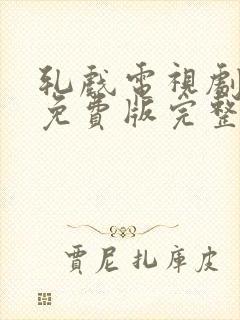 乳戲電視劇
免費版完整
賈尼扎庫皮